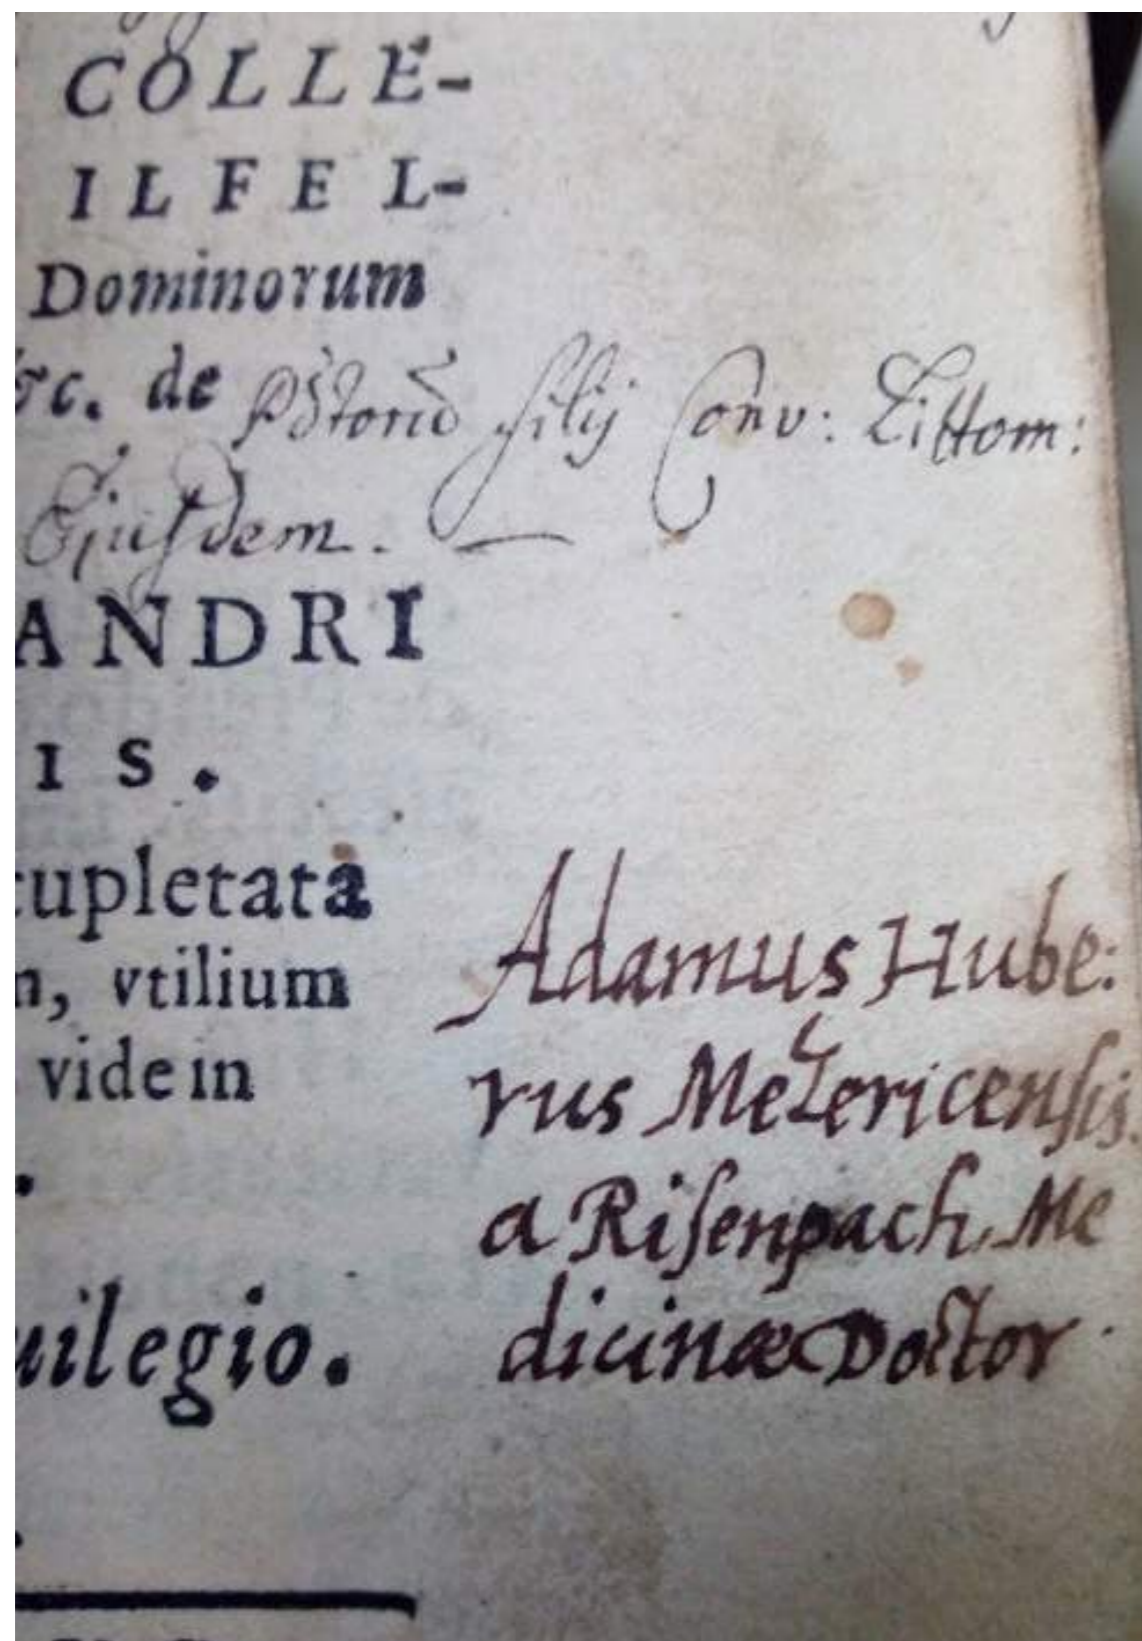 COLLE-
ILFEL-
Dominorum
&c. de
filij Conv: Littom:
Ejusdem.
ANDRI
IS.
cupletata
n, vtilium
vide in
uilegio.
Adamus Hube:
rus Mezericensis
a Risenpach, Me
dicinæ Doctor